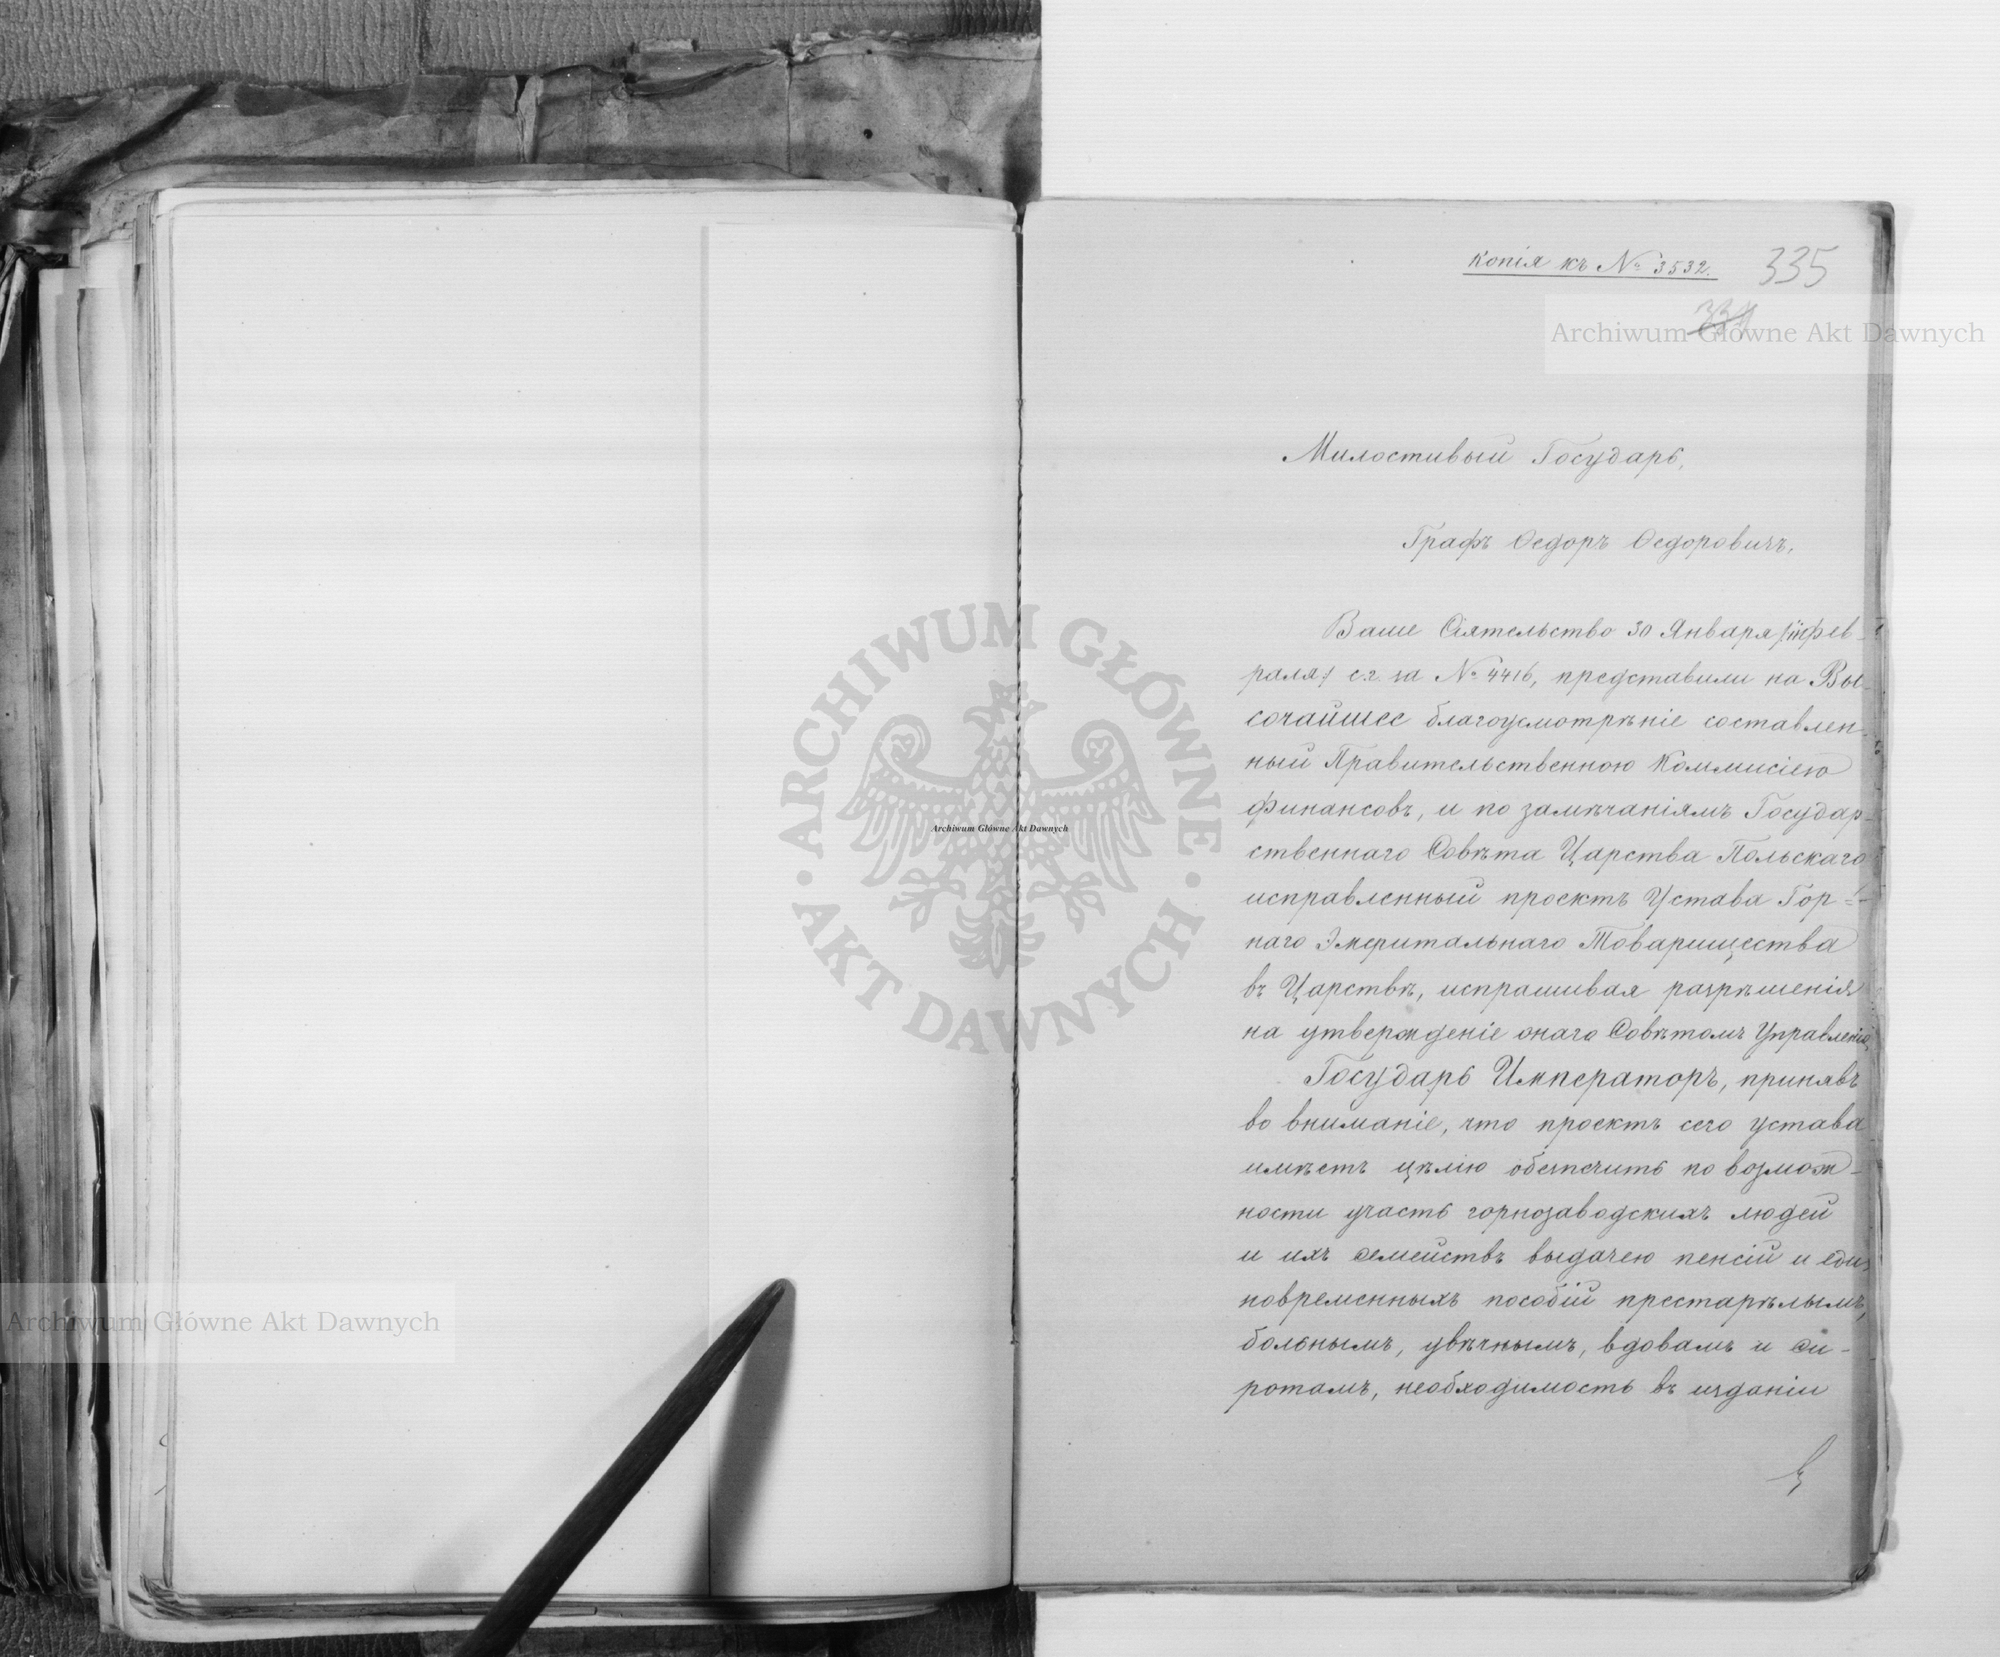 Копія къ № 3532.
335
334
Милостивый Государь,
Графъ Ѳедоръ Ѳедоровичъ,
Ваше Сіятельство 30 Января /11 Фев-
раля/ с.г. за № 4416, представили на Вы-
сочайшее благоусмотрѣніе составлен-
ный Правительственною Коммисіею
Финансовъ, и по замѣчаніямъ Государ-
ственнаго Совѣта Царства Польскаго
исправленный проектъ Устава Гор-
наго Эмеритальнаго Товарищества
въ Царствѣ, испрашивая разрѣшенія
на утвержденіе онаго Совѣтомъ Управленія.
Государь Императоръ, принявъ
во вниманіе, что проектъ сего устава
имѣетъ цѣлію обезпечить по возмож-
ности участь горнозаводскихъ людей
и ихъ семействъ выдачею пенсій и еди-
новременныхъ пособій престарѣлымъ,
больнымъ, увѣчнымъ, вдовамъ и си-
ротамъ, необходимость въ изданіи
Archiwum Główne Akt Dawnych
Archiwum Główne Akt Dawnych
Archiwum Główne Akt Dawnych
ARCHIWUM GŁÓWNE · AKT DAWNYCH ·